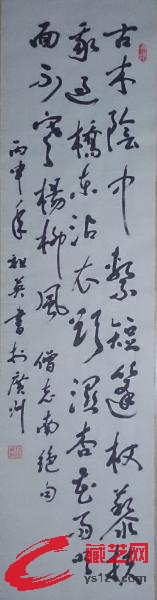 古木陰中繫短篷杖藜扶
我過橋東沾衣欲濕杏花雨吹
面不寒楊柳風 僧志南絕句
丙申年祖英書於廣州